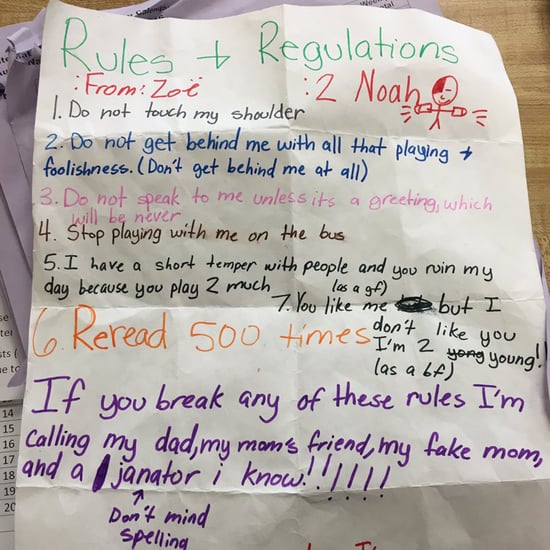 Rules + Regulations
:From: Zoë :2 Noah
1. Do not touch my shoulder
2. Do not get behind me with all that playing +
foolishness. (Don't get behind me at all)
3. Do not speak to me unless its a greeting, which
will be never
4. Stop playing with me on the bus
5. I have a short temper with people and you ruin my
day because you play 2 much
6. Reread 500 times
(as a gf)
7. You like me but I
don't like you
I'm 2 yong young!!
(as a bf)
If you break any of these rules I'm
calling my dad, my mom's friend, my fake mom,
and a janator i know!!!!!!!
Don't mind
spelling
14
15
16
17
18
19
20